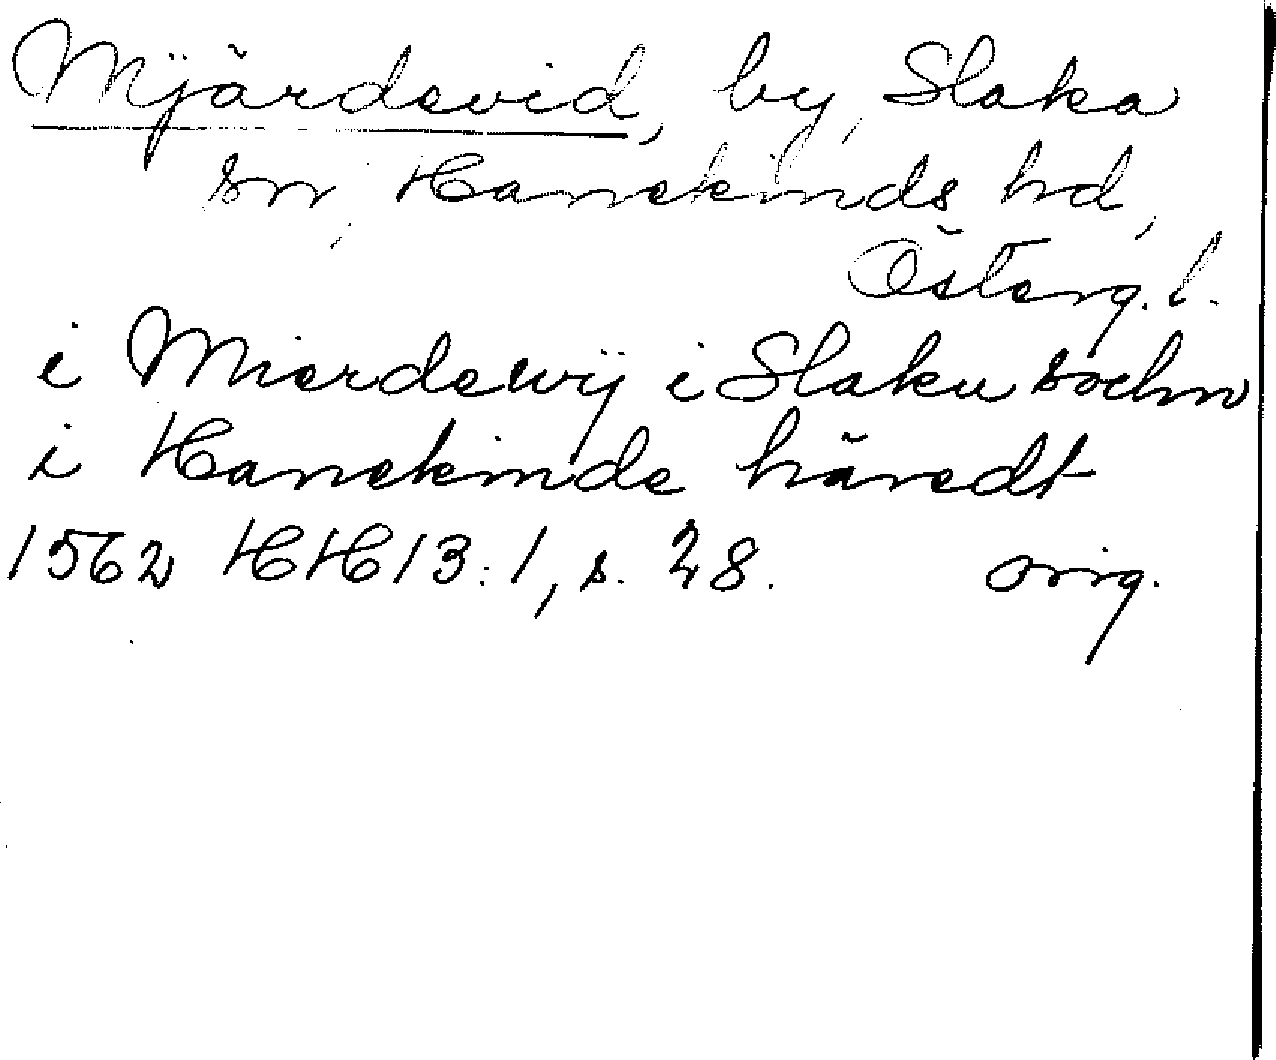 Mjärdevid, by, Slaka
sn, Hanekinds hd,
Österg. l.
i Mierdewij i Slaku sochn
i Hanekinde häredt
1562 HH 13:1, s. 28. orig.